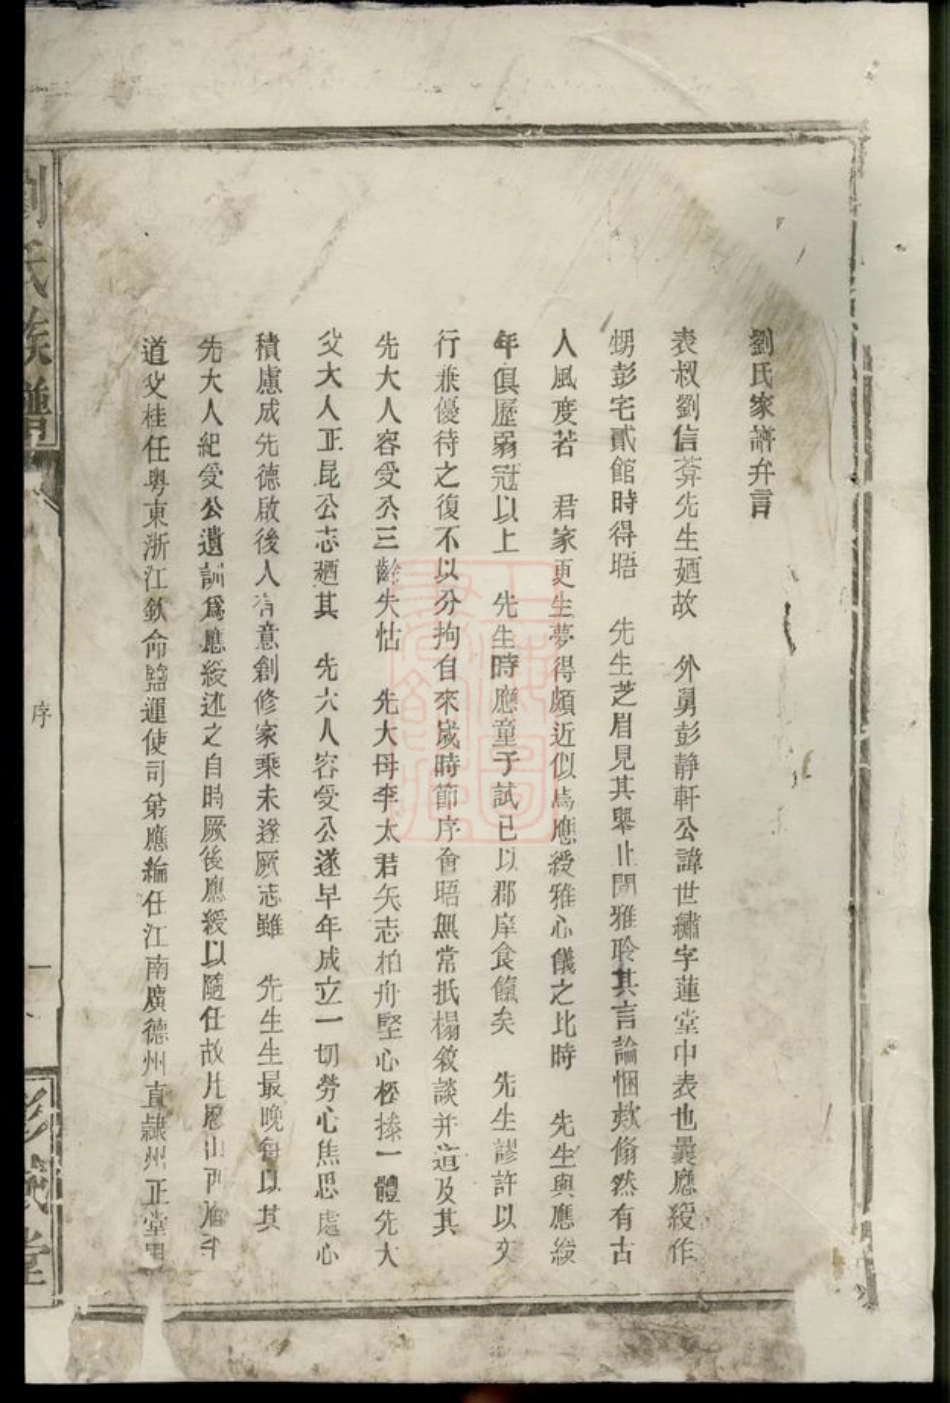 劉氏家譜弁言
表叔劉信莽先生廼故　外舅彭靜軒公諱世繡字蓮堂中表也曩應綬作
甥彭宅貳館時得晤　先生芝眉見其舉止閒雅聆其言論悃欵翛然有古
人風度若　君家更生夢得頗近似焉應綬雅心儀之比時　先生與應綬
年俱歷弱冠以上　先生時應童子試已以郡庠食餼矣　先生謬許以文
行兼優待之復不以分拘自來歲時節序會晤無常抵榻敘談并道及其
先大人容受公三齡失怙　先大母李太君矢志柏舟堅心　一體先大
父大人正昆公志廼其　先大人容受公遂早年成立一切勞心焦思處心
積慮成先德啟後人有意創修家乘未遂厥志雖　先生生最晚每以其
先大人紀受公遺訓爲應綬述之自時厥後應綬以隨任故凡歷山西
道父桂任粤東浙江欽命鹽運使司弟應綸任江南廣德州直隷州正堂
劉氏族譜
序
一
堂